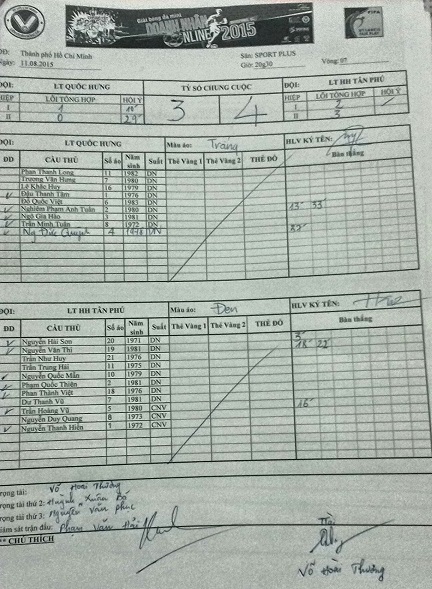 Giải bóng đá mini
DOANH NHÂN
ONLINE 2015
ĐĐ: Thành phố Hồ Chí Minh
Ngày: 11.08.2015
Sân: SPORT PLUS
Giờ: 20g30
Vòng: 07
ĐỘI: LT QUỐC HƯNG TỶ SỐ CHUNG CUỘC ĐỘI: LT HH TÂN PHÚ
HIỆP LỖI TỔNG HỢP HỘI Ý 3 4 HIỆP LỖI TỔNG HỢP HỘI Ý
I 1 I 2
II 0 29' II 3
ĐỘI: LT QUỐC HƯNG Màu áo: Trắng HLV KÝ TÊN:
DD CẦU THỦ Số áo Năm sinh Suất Thẻ Vàng 1 Thẻ Vàng 2 THẺ ĐỎ Bàn thắng
Phan Thanh Long 11 1982 DN
Trương Văn Hưng 7 1980 DN
Lê Khắc Huy 16 1979 DN
Đậu Thanh Tâm 1 1976 DN
Đỗ Quốc Việt 6 1983 DN
Nghiêm Phạm Anh Tuấn 2 1980 DN 13' 33'
Ngô Gia Hào 3 1981 DN
Trần Minh Tuấn 8 1972 DN
Ng Đức Quỳnh 4 1978
ĐỘI: LT HH TÂN PHÚ Màu áo: Đen HLV KÝ TÊN:
DD CẦU THỦ Số áo Năm sinh Suất Thẻ Vàng 1 Thẻ Vàng 2 THẺ ĐỎ Bàn thắng
Nguyễn Hải Sơn 20 1971 DN 3'
Nguyễn Văn Thi 19 1981 DN 18' 22'
Trần Như Huy 21 1976 DN
Trần Trung Hải 11 1975 DN
Nguyễn Quốc Mẫn 10 1979 DN
Phạm Quốc Thiện 2 1981 DN
Phan Thành Việt 18 1976 DN
Dư Thanh Vũ 7 1981 DN 16'
Trần Hoàng Vũ 5 1980 CNV
Nguyễn Duy Quang 8 1973 CNV
Nguyễn Thanh Hiền 1 1972 CNV
Trọng tài: Võ Hoài Thương
Trọng tài thứ 2: Huỳnh Xuân
Trọng tài thứ 3: Nguyễn Văn Phúc
Giám sát trận đấu: Phạm Văn Hải
** CHÚ THÍCH
Võ Hoài Thương